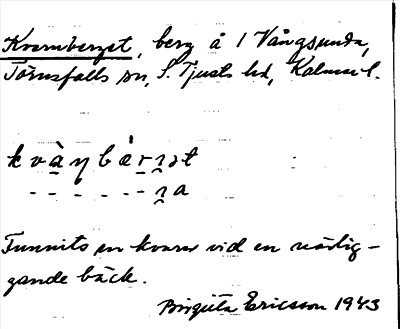 Kvarnberget, berg å 1 Vångsunda,
Törnsfalls sn, S. Tjusts hd, Kalmar l.
kvàṇbæ̀r̤ɪət
- - - - - - ɪa
Funnits en kvarn vid en närlig-
gande bäck.
Birgitta Ericsson 1943